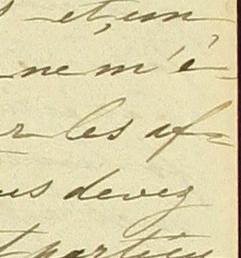 et, un
ne m'é-
r les af-
us devez